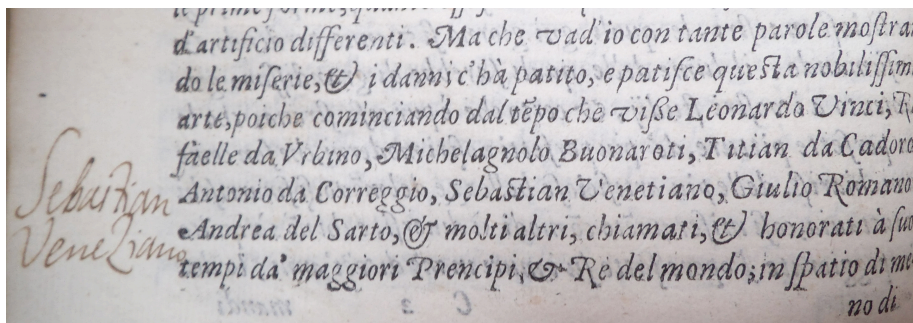 le prime forme,
d'artificio differenti. Ma che vad'io con tante parole moſtra
do le miſerie, & i danni c'hà patito, e patiſce queſta nobiliſſim
arte, poiche cominciando dal tẽpo che viſſe Leonardo Vinci, R
faelle da Vrbino, Michelagnolo Buonaroti, Titian da Cador
Antonio da Correggio, Sebaſtian Venetiano, Giulio Romano
Andrea del Sarto, & molti altri, chiamati, & honorati à ſuo
tempi da' maggiori Prencipi, & Re del mondo; in ſpatio di me
no di
Sebaſtian
Veneziano